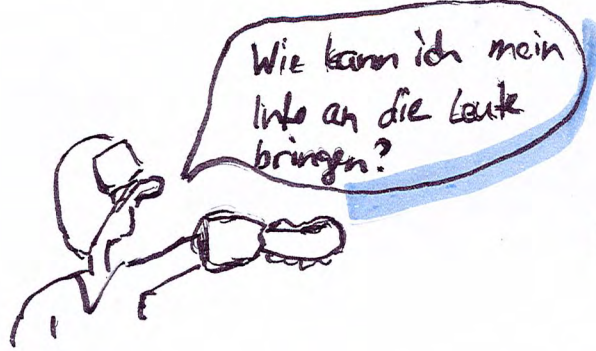 Wie kann ich mein
Info an die Leute
bringen?